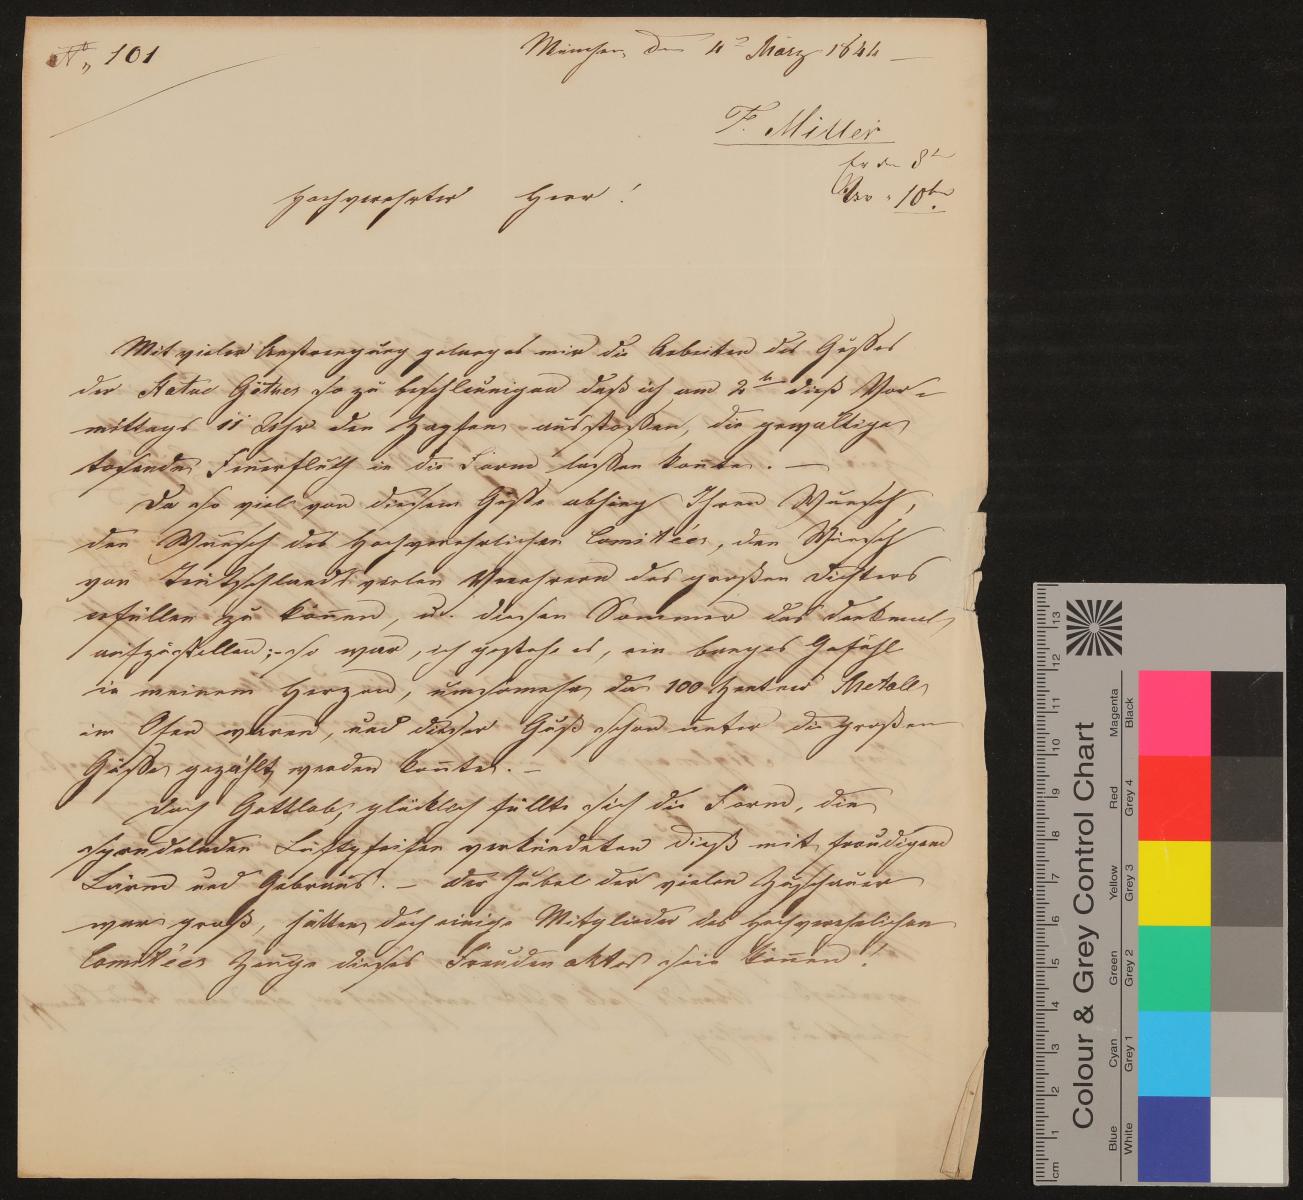 No 101
München den 4t März 1844
F. Miller
Er den 8t
10ten
Hochverehrter Herr!
Mit vieler Anstrengung gelang es mir die Arbeiten des Gußes
der Statue Göthes so zu beschleunigen daß ich am 2ten dieß Vor-
mittags 11 Uhr den Zapfen ausstoßen, die gewaltige
tosende Feuerfluth in die Form lassen konnte. —
Da so viel von diesem Guße abhing Ihren Wunsch,
den Wunsch des hochverehrlichen Comitées, den Wunsch
von Deutschlands vielen Verehrern des großen Dichters
erfüllen zu können, u. diesen Sommer das Denkmal
aufzustellen; – so war, ich gestehe es, ein banges Gefühl
in meinem Herzen, umsomehr da 100 Zentner Metall
im Ofen waren, und dieser Guß schon unter die großen
Güße gezählt werden konnte. —
Doch Gottlob, glücklich füllte sich die Form, die
sprudelnden Luftpfeifen verkündeten dieß mit freudigem
Lärm und Gebraus. — Der Jubel der vielen Zuschauer
war groß, hätten doch einige Mitglieder des hochverehrlichen
Comitées Zeuge dieses Freudenaktes sein können!
cm 1 2 3 4 5 6 7 8 9 10 11 12 13
Colour & Grey Control Chart
Blue Cyan Green Yellow Red Magenta
White Grey 1 Grey 2 Grey 3 Grey 4 Black